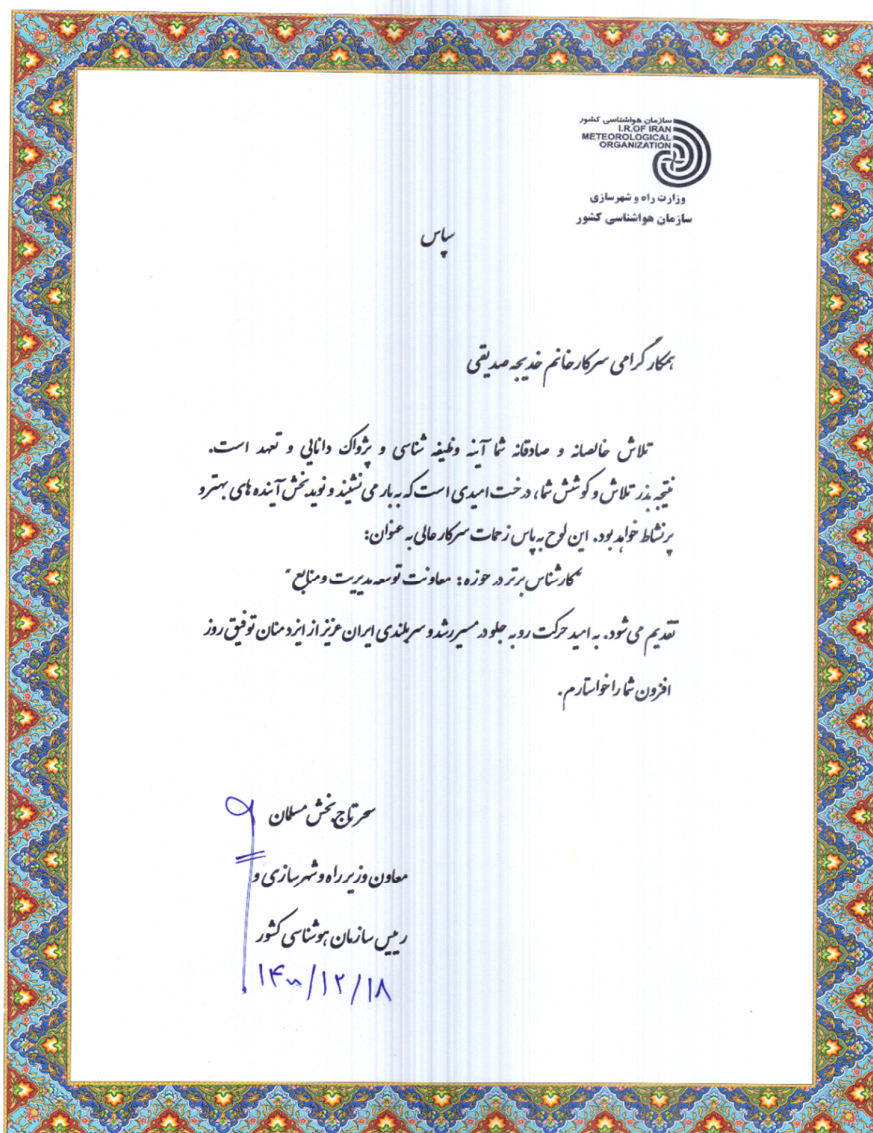 سازمان هواشناسی کشور
I.R.OF IRAN
METEOROLOGICAL
ORGANIZATION
وزارت راه و شهرسازی
سازمان هواشناسی کشور
سپاس
همکار گرامی سرکار خانم خدیجه صدیقی
تلاش خالصانه و صادقانه شما آینه وظیفه شناسی و پژواک دانایی و تعهد است.
نتیجه بذر تلاش و کوشش شما، درخت امیدی است که به بار می نشیند و نوید بخش آینده های بهتر و
پرنشاط خواهد بود. این لوح به پاس زحمات سرکار عالی به عنوان:
"کارشناس برتر در حوزه: معاونت توسعه مدیریت و منابع"
تقدیم می شود. به امید حرکت رو به جلو در مسیر رشد و سربلندی ایران عزیز از ایزد منان توفیق روز
افزون شما را خواستارم.
سحر تاج بخش مسلمان
معاون وزیر راه و شهرسازی و
رییس سازمان هوشناسی کشور
۱۴۰۰/۱۲/۱۸